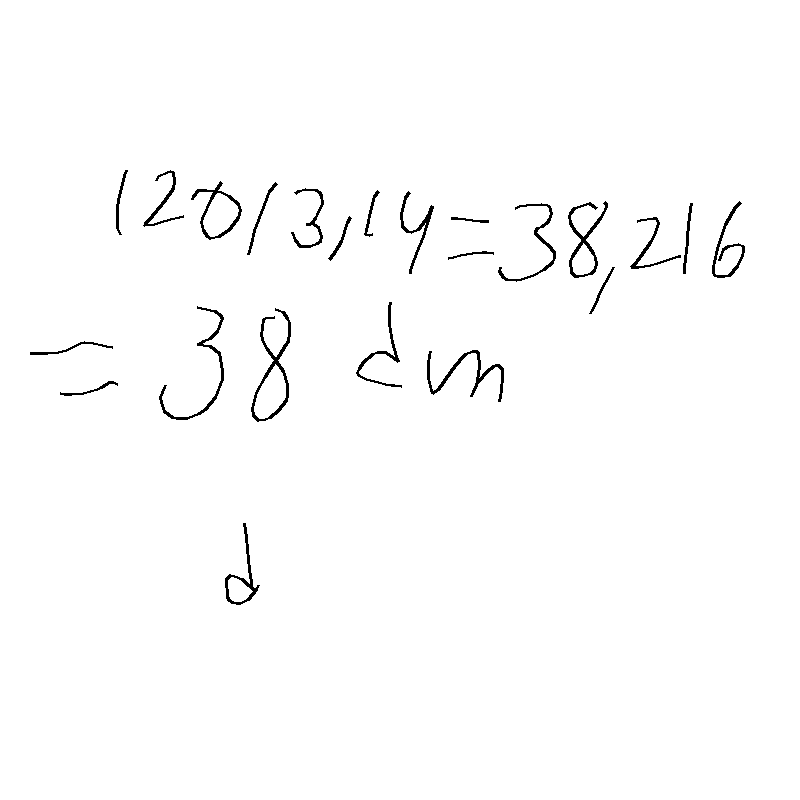 120/3,14=38,216
≈ 38 dm
d